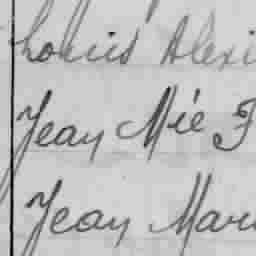 Louis Alexi
Jean Mié F
Jean Mari